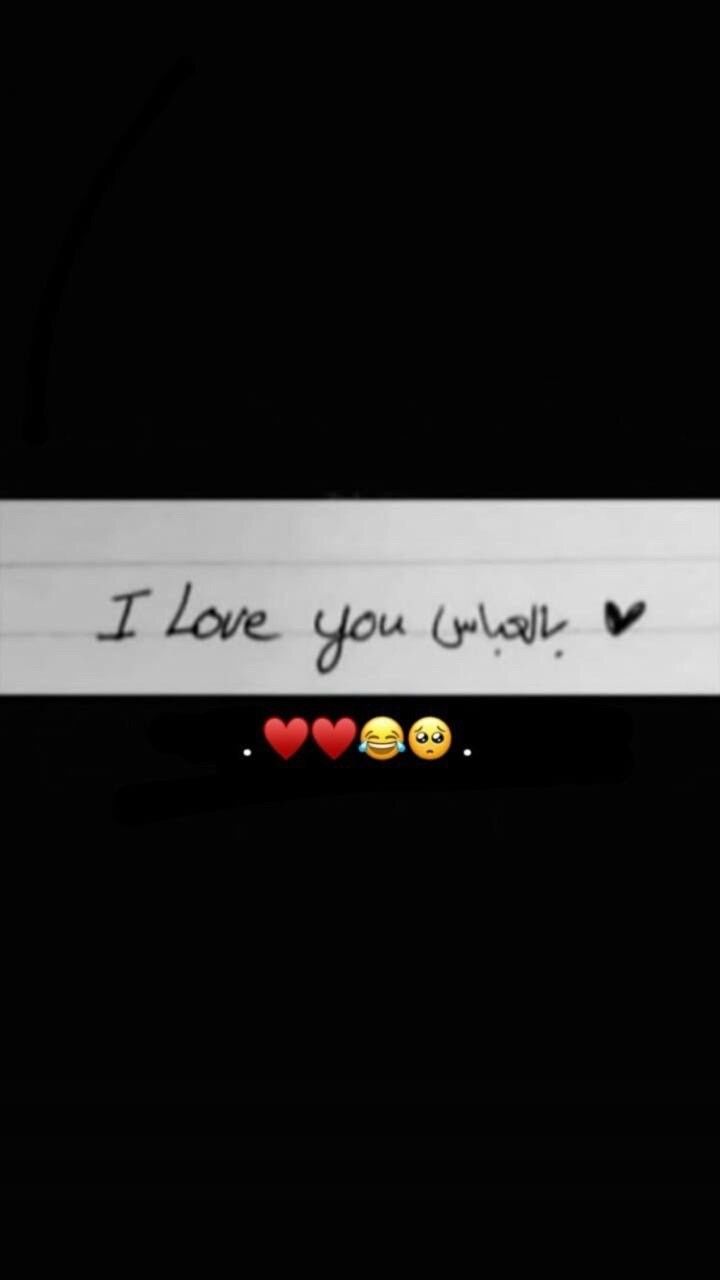 I Love you بالعباس ♥
. ♥️♥️😂🥺 .